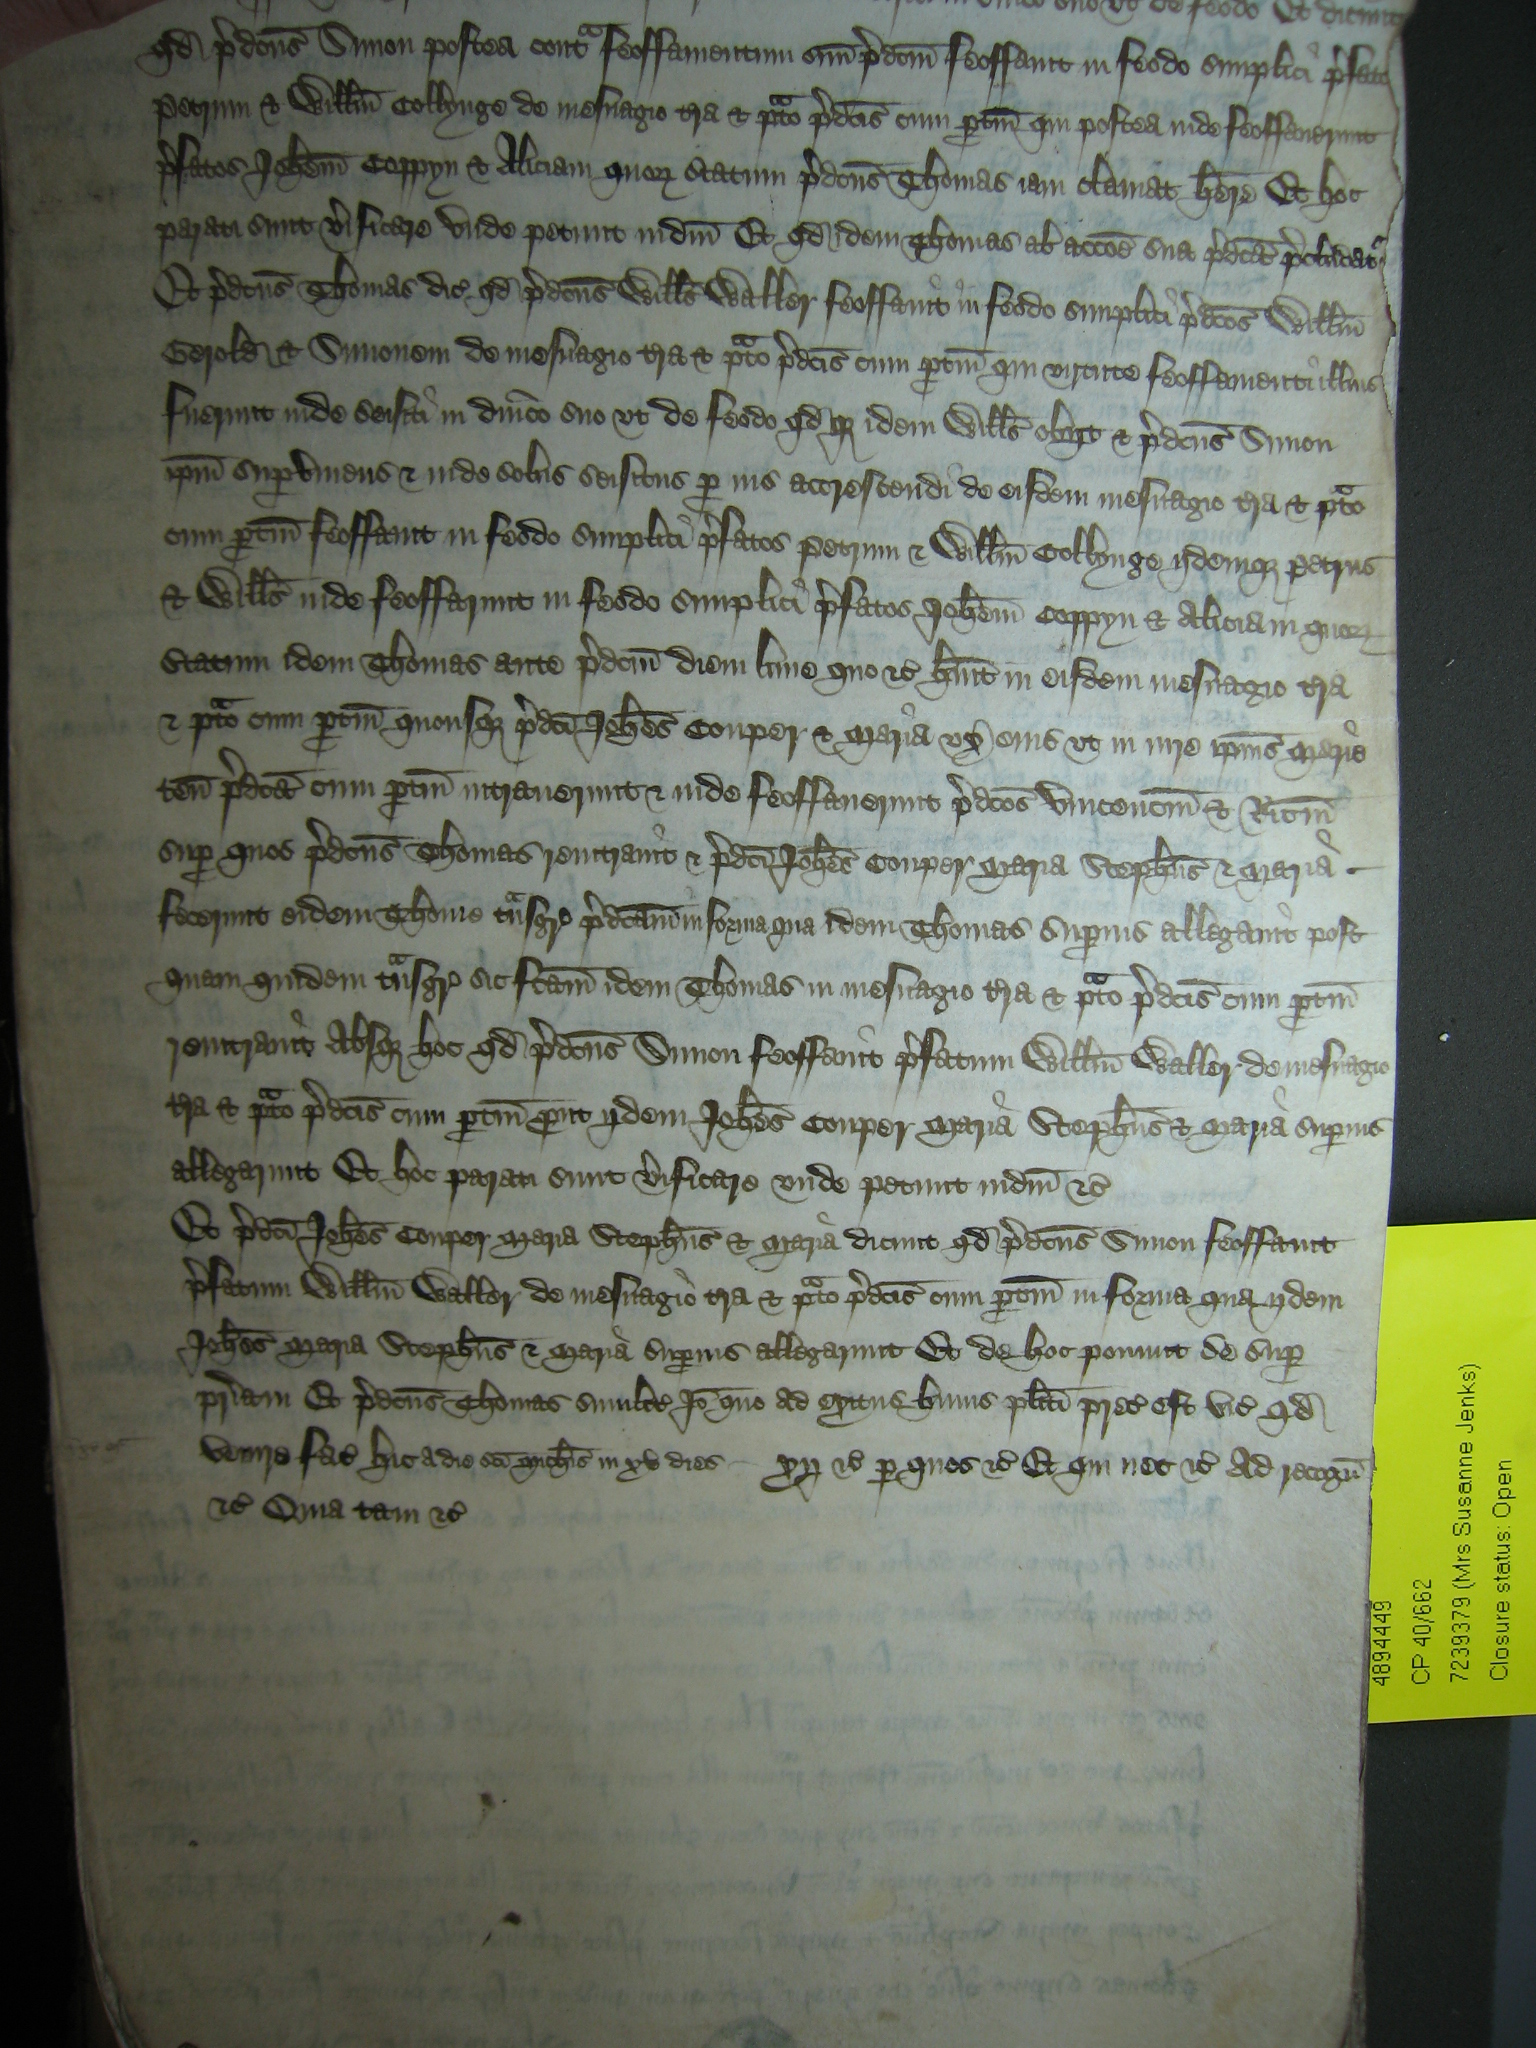 suo vt de feodo Et dicunt
qd p'dcus Simon postea contra feoffamentum suu p'dcm feoffauit in feodo simplici p'fatos
Petrum & Willm Collynge de mesuagio tra & prato p'dcis cum ptin qui postea inde feoffauerunt
p'fatos Johem Coppyn & Aliciam quor statum p'dcus Thomas iam clamat here Et hoc
parati sunt v'ificare vnde petunt iudm Et qd idem Thomas ab accoe sua p'dca p'cludat'
Et p'dcus Thomas dic' qd p'dcus Wills Waller feoffauit in feodo simplici p'dcos Willm
Gerold & Simonem de mesuagio tra & prato p'dcis cum ptin qui virtute feoffamenti illius
fuerunt inde seisiti in dnico suo vt de feodo qdq idem Wills obijt & p'dcus Simon
ipm sup'viuens & inde solus seisitus p ius accrescendi de eisdem mesuagio tra & prato
cum ptin feoffauit in feodo simplici p'fatos Petrum & Willm Collynge ijdemq Petrus
& Wills inde feoffarunt in feodo simplici p'fatos Johem Coppyn & Aliciam quor
statum idem Thomas ante p'dcm diem bine quo &c huit in eisdem mesuagio tra
& prato cum ptin quousq p'dci Johes Couper & Maria vx eius vt in iure ipius Marie
ten p'dca cum ptin intrauerunt & inde feoffauerunt p'dcos Vincencm & Ricm
sup quos p'dcus Thomas reintrauit & p'dci Johes Couper Maria Stephus & Maria
fecerunt eidem Thome transgr' p'dcam in forma qua idem Thomas superius allegauit post
quam quidem transgr' sic fcam idem Thomas in mesuagio tra & prato p'dcis cum ptin
reintrauit Absq hoc qd p'dcus Simon feoffauit p'fatum Willm Waller de mesuagio
tra & prato p'dcis cum ptin put ijdem Johes Couper Maria Stephus & Maria superius
allegarunt Et hoc parati sunt v'ificare vnde petunt iudm &c
Et p'dci Johes Couper Maria Stephus & Maria dicunt qd p'dcus Simon feoffauit
p'fatum Willm Waller de mesuagio tra & prato p'dcis cum ptin in forma qua ijdem
Johes Maria Stephus & Maria superius allegarunt Et de hoc ponunt se sup
pr'iam Et p'dcus Thomas similit' Jo quo ad exitus huius pliti prec' est vic' qd
venire fac' hic a die sci Michis in xv dies xij &c p quos &c Et qui nec &c Ad recogn
&c Quia tam &c
4894449
CP 40/662
7239379 (Mrs Susanne Jenks)
Closure status: Open